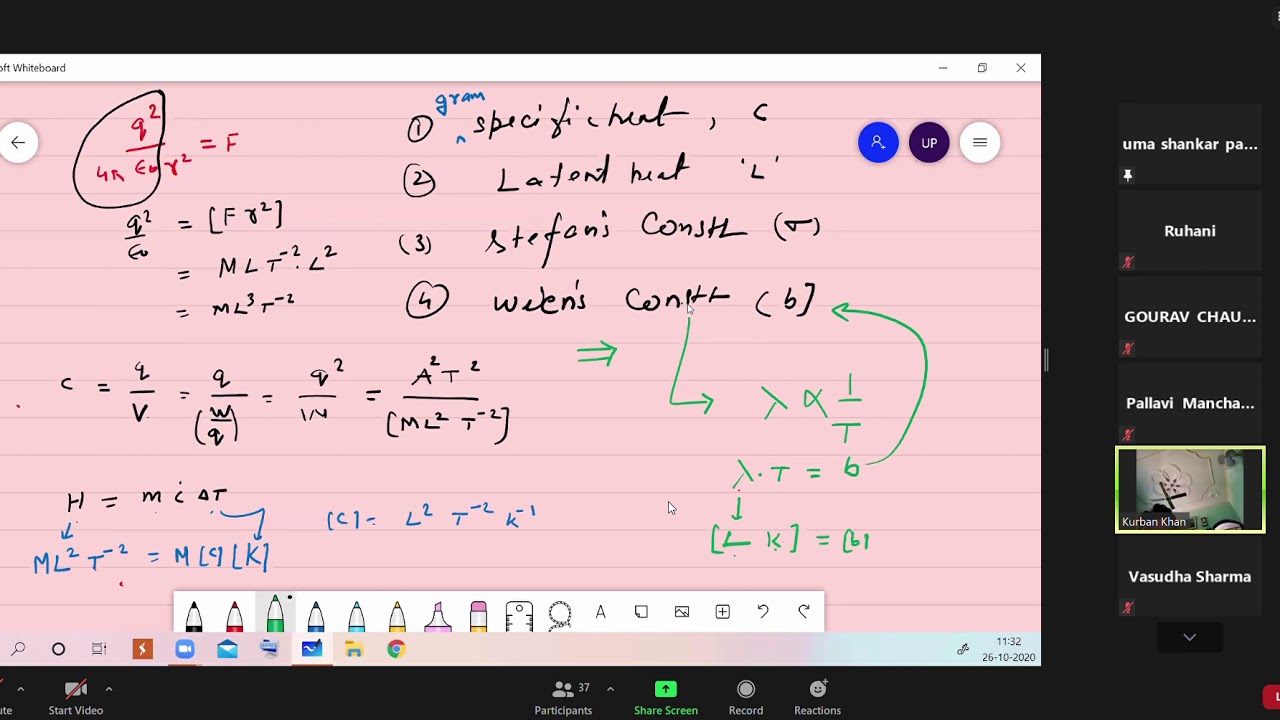 oft Whiteboard
q² / 4π ε₀ r² = F
q² / ε₀ = [F r²]
= M L T⁻² . L²
= M L³ T⁻²
gram
① specific heat , c
② Latent heat 'L'
(3) stefan's Constt (σ)
④ Wein's Constt ( b ]
UP
c = q / V = q / (W/q) = q² / W = A² T² / [ML² T⁻²]
⇒
λ ∝ 1 / T
λ . T = b
[L K] = [b]
H = m c ΔT
ML² T⁻² = M [c] [K]
[C] = L² T⁻² K⁻¹
A
11:32
26-10-2020
uma shankar pa...
Ruhani
GOURAV CHAU...
Pallavi Mancha...
Kurban Khan
Vasudha Sharma
ute
Start Video
37
Participants
Share Screen
Record
Reactions
L